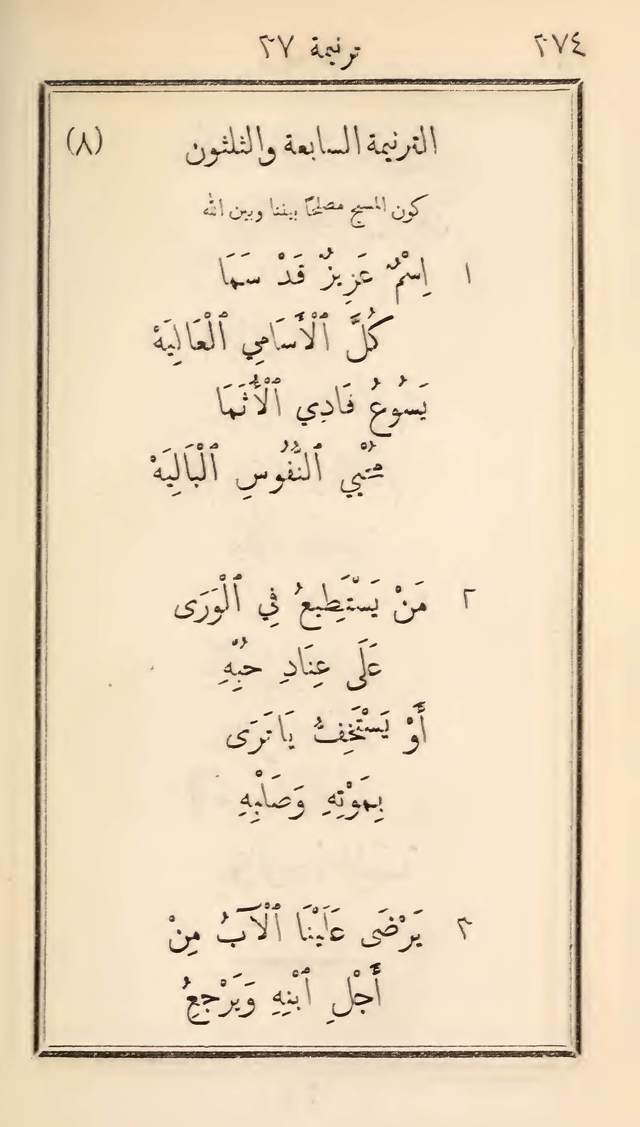 ٢٧٤ ترنيمة ٣٧
الترنيمة السابعة والثلثون (٨)
كون المسيح مصلحًا بيننا وبين الله
١ اِسْمٌ عَزِيزٌ قَدْ سَمَا
كُلَّ ٱلْأَسَامِي ٱلْعَالِيَهْ
يَسُوعُ فَادِي ٱلْأُثَمَا
مُنْجِي ٱلنُّفُوسِ ٱلْبَالِيَهْ
٢ مَنْ يَسْتَطِيعُ فِي ٱلْوَرَى
عَلَى عِنَادِ حُبِّهِ
أَوْ يَسْتَخِفُّ يَا تَرَى
بِمَوْتِهِ وَصَلْبِهِ
٣ يَرْضَى عَلَيْنَا ٱلْآبُ مِنْ
أَجْلِ ٱبْنِهِ وَيَرْجِعُ